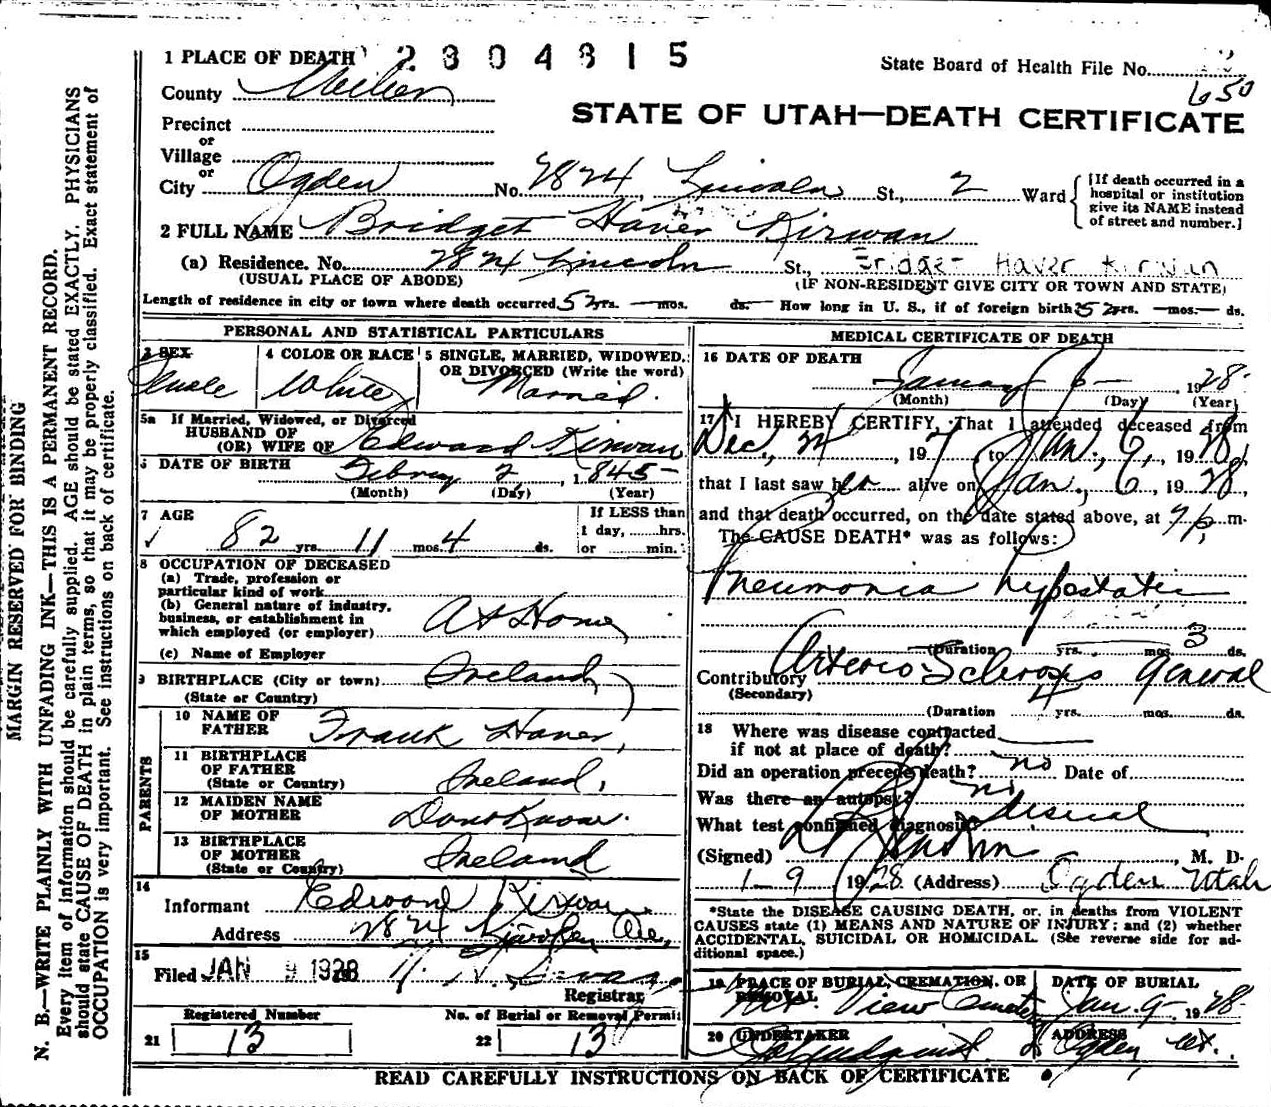 1 PLACE OF DEATH 2804815
State Board of Health File No.
County Weber
650
STATE OF UTAH—DEATH CERTIFICATE
Precinct
or
Village
or
City Ogden No. 2824 Lincoln St., 2 Ward
[If death occurred in a
hospital or institution
give its NAME instead
of street and number.]
2 FULL NAME Bridget Haver Kirwan
(a) Residence. No. 2824 Lincoln St., Bridget Haver Kirwan
(USUAL PLACE OF ABODE) (IF NON-RESIDENT GIVE CITY OR TOWN AND STATE)
Length of residence in city or town where death occurred 52 yrs. — mos. ds. — How long in U. S., if of foreign birth 52 yrs. — mos. — ds.
PERSONAL AND STATISTICAL PARTICULARS
3 SEX 4 COLOR OR RACE 5 SINGLE, MARRIED, WIDOWED,
OR DIVORCED (Write the word)
Female White Married.
5a If Married, Widowed, or Divorced
HUSBAND OF
(OR) WIFE OF Edward Kirwan
6 DATE OF BIRTH 2, 1845
(Month) (Day) (Year)
7 AGE If LESS than
1 day, hrs.
82 yrs. 11 mos. 4 ds. or min.
8 OCCUPATION OF DECEASED
(a) Trade, profession or
particular kind of work
(b) General nature of industry,
business, or establishment in
which employed (or employer) At Home
(c) Name of Employer
9 BIRTHPLACE (City or town) Ireland
(State or Country)
PARENTS
10 NAME OF
FATHER Frank Haver,
11 BIRTHPLACE
OF FATHER
(State or Country) Ireland,
12 MAIDEN NAME
OF MOTHER Dont Know.
13 BIRTHPLACE
OF MOTHER
(State or Country) Ireland
14
Informant Edward Kirwan
Address 2824 Ave,
15
Filed JAN 9 1928
Registrar
Registered Number No. of Burial or Removal Permit
21 13 22 13
MEDICAL CERTIFICATE OF DEATH
16 DATE OF DEATH
January 6 — 1928
(Month) (Day) (Year)
17 I HEREBY CERTIFY, That I attended deceased from
Dec., 24, 197 to Jan., 6, 1928,
that I last saw her alive on Jan., 6, 1928,
and that death occurred, on the date stated above, at 7 p, m.
The CAUSE DEATH* was as follows:
Pneumonia hypostatic
(Duration yrs. mos. 3 ds.
Contributory Arterio Sclerosis General
(Secondary)
(Duration 4 yrs. mos. ds.
18 Where was disease contracted
if not at place of death?
Did an operation precede death? no Date of
Was there an autopsy? no
What test confirmed diagnosis
(Signed) , M. D.
1-9 1928 (Address) Ogden Utah
*State the DISEASE CAUSING DEATH, or, in deaths from VIOLENT
CAUSES state (1) MEANS AND NATURE OF INJURY; and (2) whether
ACCIDENTAL, SUICIDAL OR HOMICIDAL. (See reverse side for ad-
ditional space.)
19 PLACE OF BURIAL, CREMATION, OR
REMOVAL DATE OF BURIAL
Mt. View Cemetery Jan. 9 - 1928
20 UNDERTAKER ADDRESS
Ogden Ut.
READ CAREFULLY INSTRUCTIONS ON BACK OF CERTIFICATE
MARGIN RESERVED FOR BINDING
N. B.—WRITE PLAINLY WITH UNFADING INK—THIS IS A PERMANENT RECORD.
Every item of information should be carefully supplied. AGE should be stated EXACTLY. PHYSICIANS
should state CAUSE OF DEATH in plain terms, so that it may be properly classified. Exact statement of
OCCUPATION is very important. See instructions on back of certificate.